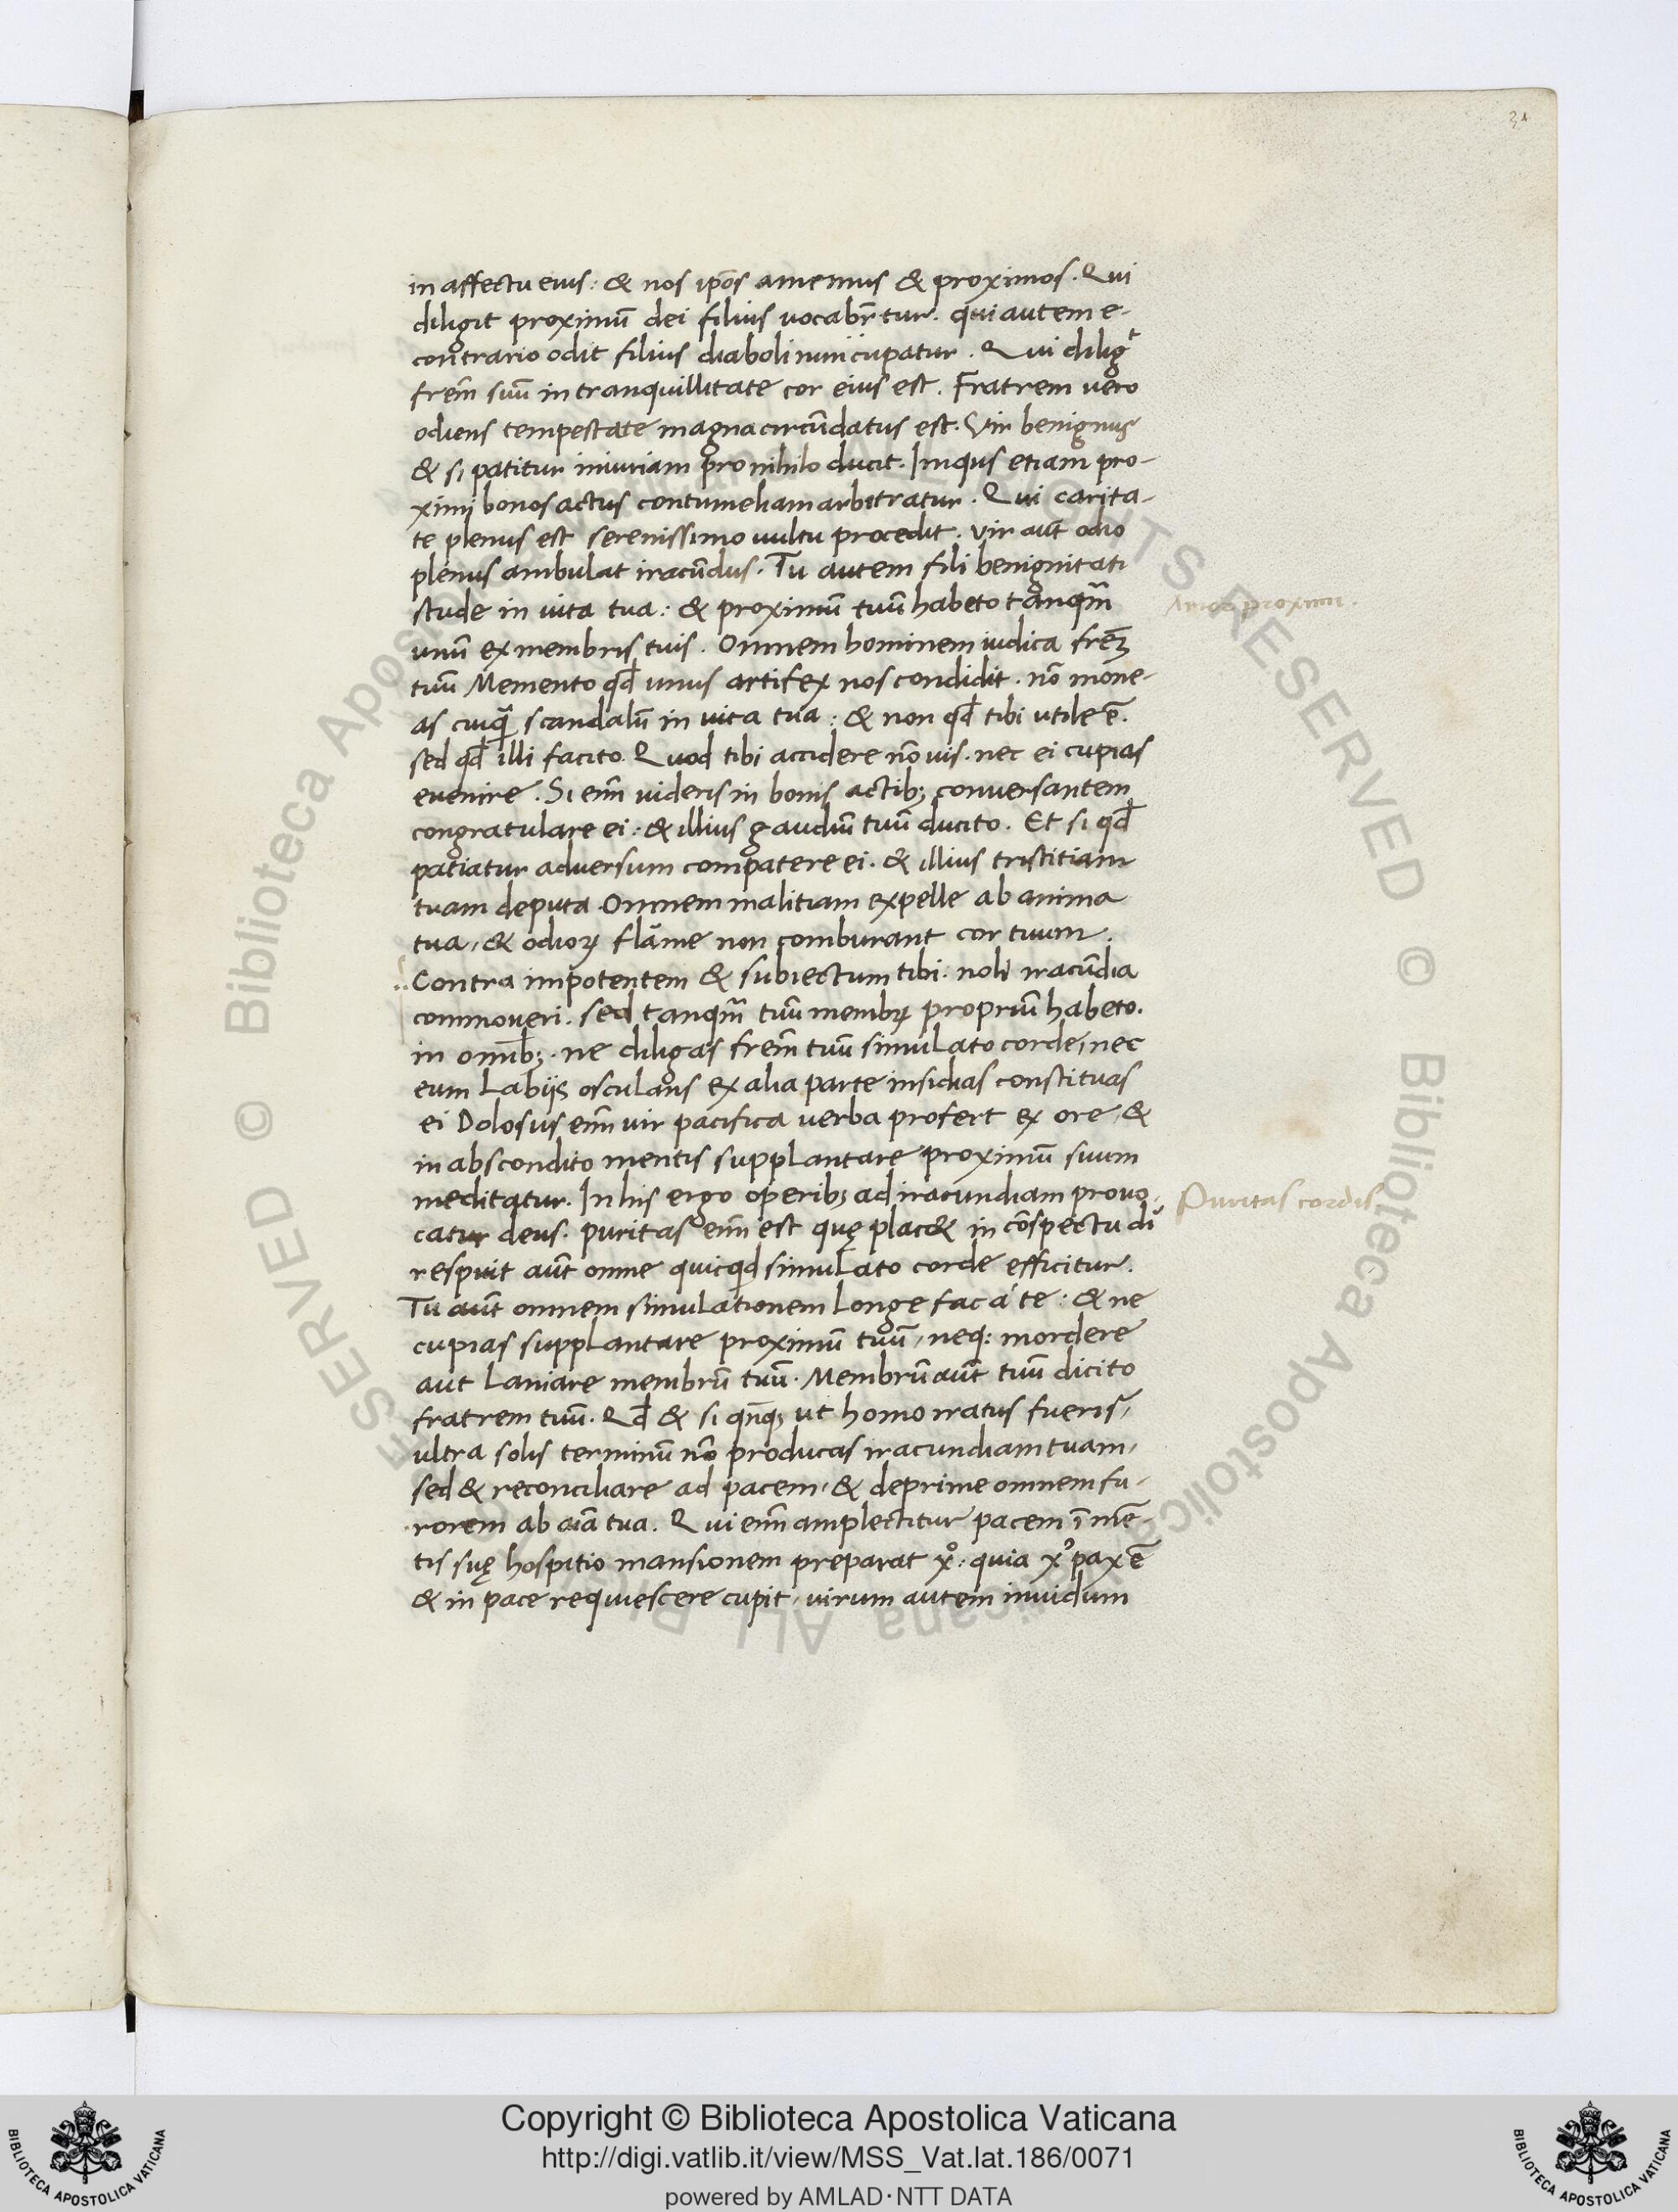 31
in affectu eius: & nos ip̄os amemus & proximos. Qui
diligit proximū dei filius uocabr̄tur. qui autem e-
contrario odit filius diaboli nuncupatur. Qui dilig^t
frēm suū in tranquillitate cor eius est. Fratrem uero
odiens tempestate magna circūdatus est. Vir benignus
& si patitur iniuriam pro nihilo ducit. Iniqus etiam pro-
ximi bonos actus contumeliam arbitratur. Qui carita-
te plenus est serenissimo uultu procedit. vir aūt odio
plenus ambulat iracūdus. Tu autem fili benignitati
stude in uita tua: & proximū tuū habeto tanqm̄
Amor proximi.
unū ex membris tuis. Omnem hominem iudica frēꝫ
tuū Memento qd̄ unus artifex nos condidit. nō mone-
as cuiqꝫ scandalū in uita tua: & non qd̄ tibi utile ē.
sed qd̄ illi facito. Quod tibi accidere nō uis. nec ei cupias
euenire. Si enī uideris in bonis actibꝫ conuersantem
congratulare ei: & illius gaudiū tuū ducito. Et si qd̄
patiatur aduersum compatere ei. & illius tristitiam
tuam deputa. Omnem malitiam expelle ab anima
tua, & odioꝝ flāme non comburant cor tuum.
Contra impotentem & subiectum tibi. noli iracūdia
commoueri. sed tanqm̄ tuū membꝝ propriū habeto.
in omībꝫ. ne diligas frēm tuū simulato corde, nec
eum labijs osculans ex alia parte insidias constituas
ei Dolosus enī uir pacifica uerba profert ex ore, &
in abscondito mentis supplantare proximū suum
meditatur. In his ergo operibꝫ ad iracundiam prouo-
Puritas cordis
catur deus. puritas enī est quę plac& in cōspectu dī
respuit aūt omne quicqd simulato corde efficitur.
Tu aūt omnem simulationem longe fac á te: & ne
cupias supplantare proximū tuū, neq: mordere
aut laniare membrū tuū. Membrū aūt tuū dicito
fratrem tuū. Qd̄ & si qn̄qꝫ ut homo iratus fueris,
ultra solis terminū nō producas iracundiam tuam,
sed & reconciliare ad pacem, & deprime omnem fu-
rorem ab aīa tua. Qui enī amplectitur pacem ī mē-
tis suę hospitio mansionem preparat xº: quia xꝰ pax ē
& in pace requiescere cupit, uirum autem inuidum
Copyright © Biblioteca Apostolica Vaticana
http://digi.vatlib.it/view/MSS_Vat.lat.186/0071
powered by AMLAD·NTT DATA